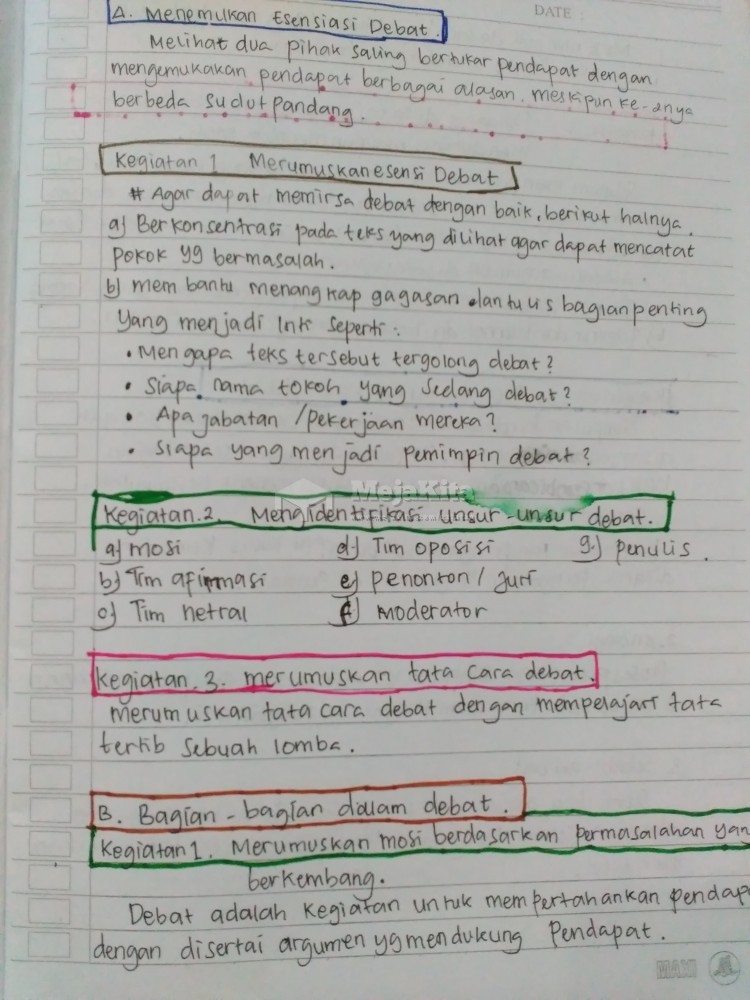 DATE :
A. Menemukan Esensiasi Debat.
Melihat dua pihak saling bertukar pendapat dengan
mengemukakan pendapat berbagai alasan. meskipun ke-anya
berbeda sudut pandang.
Kegiatan 1 Merumuskan esensi Debat
# Agar dapat memirsa debat dengan baik, berikut halnya.
a) Berkonsentrasi pada teks yang dilihat agar dapat mencatat
pokok yg bermasalah.
b) mem bantu menangkap gagasan bagian penting
yang menjadi inti seperti :
• Mengapa teks tersebut tergolong debat?
• Siapa nama tokoh yang sedang debat?
• Apa jabatan / pekerjaan mereka?
• Siapa yang menjadi pemimpin debat?
MejaKita
Kegiatan.2. Mengidentifikasi unsur-unsur debat.
a) mosi d) Tim oposisi g.) penulis.
b) Tim afirmasi e) penonton / juri
c) Tim netral f) moderator
Kegiatan.3. merumuskan tata cara debat.
merumuskan tata cara debat dengan mempelajari tata
tertib sebuah lomba.
B. Bagian - bagian dalam debat.
Kegiatan 1. Merumuskan mosi berdasarkan permasalahan yan
berkembang.
Debat adalah kegiatan untuk mempertahankan pendap
dengan disertai argumen yg mendukung pendapat.
MAXI